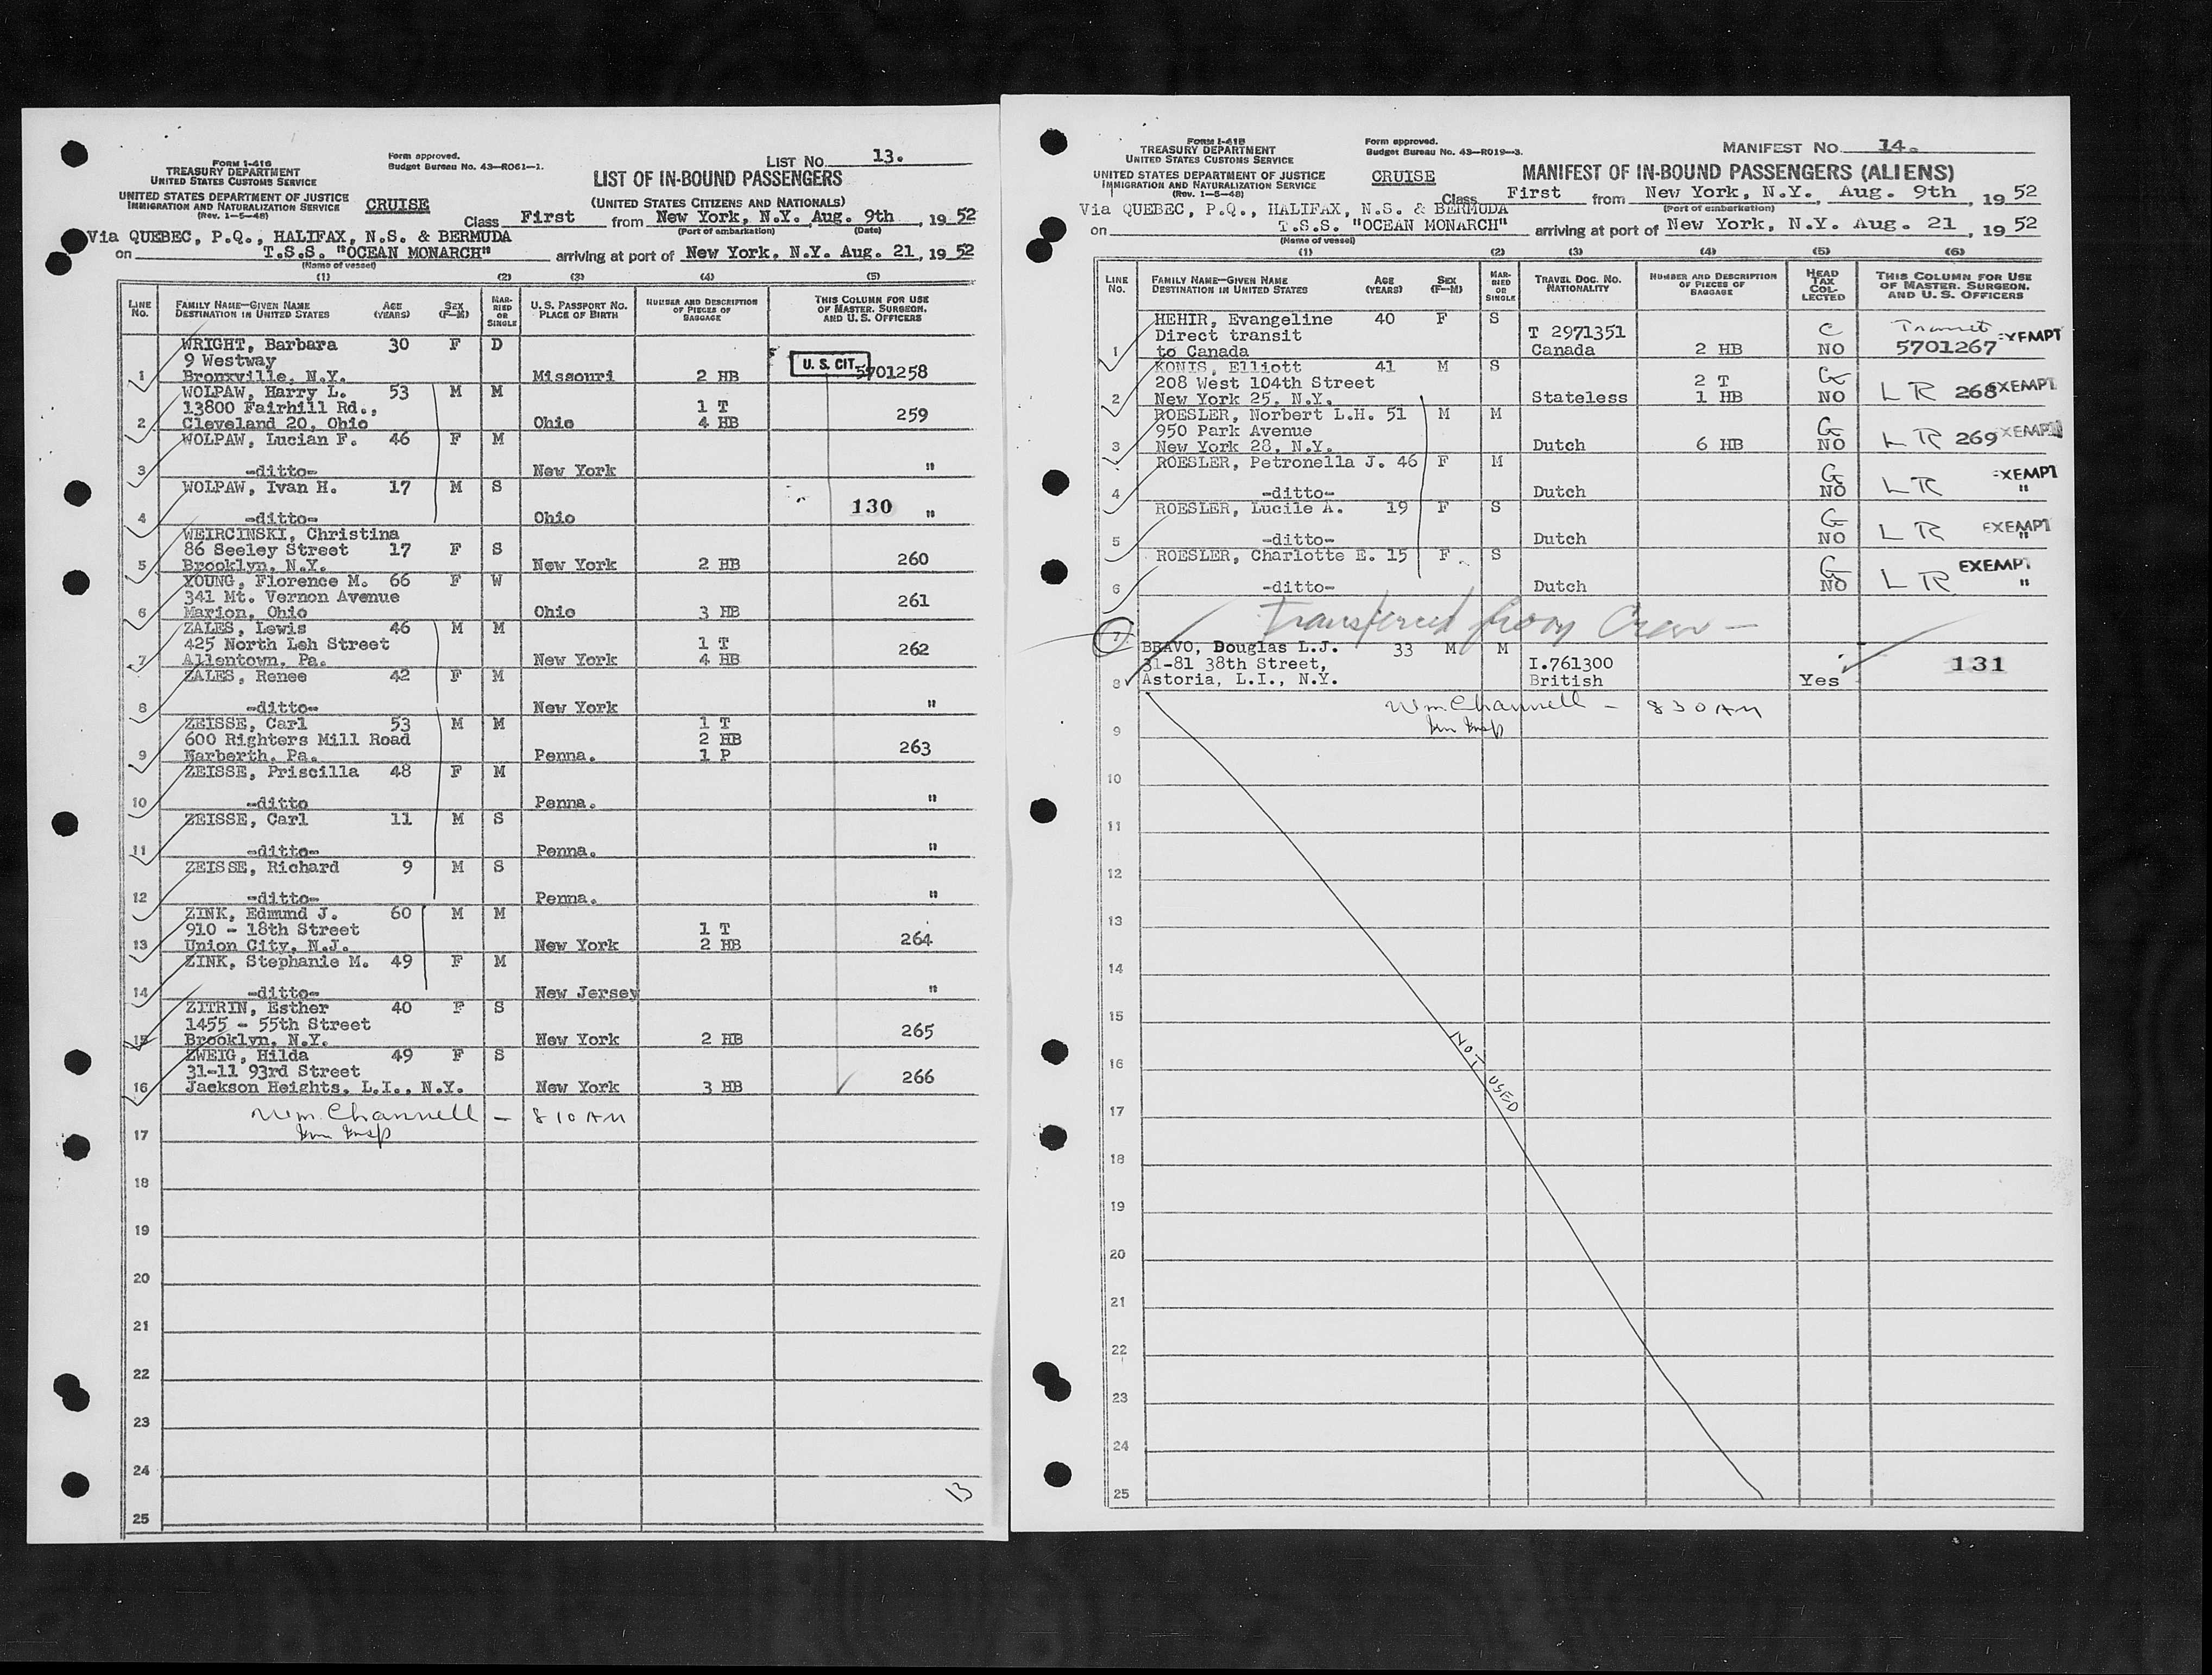 FORM I-416
TREASURY DEPARTMENT
UNITED STATES CUSTOMS SERVICE
UNITED STATES DEPARTMENT OF JUSTICE
IMMIGRATION AND NATURALIZATION SERVICE
(Rev. 1-5-48)
Form approved.
Budget Bureau No. 43-R061-1.
LIST No. 13.
LIST OF IN-BOUND PASSENGERS
(UNITED STATES CITIZENS AND NATIONALS)
CRUISE
Class First from New York, N.Y. Aug. 9th, 19 52
(Port of embarkation) (Date)
Via QUEBEC, P.Q., HALIFAX, N.S. & BERMUDA
on T.S.S. "OCEAN MONARCH" arriving at port of New York, N.Y. Aug. 21, 19 52
(Name of vessel)
(1) (2) (3) (4) (5)
LINE No. FAMILY NAME—GIVEN NAME DESTINATION IN UNITED STATES AGE (YEARS) SEX (F-M) MARRIED OR SINGLE U.S. PASSPORT NO. PLACE OF BIRTH NUMBER AND DESCRIPTION OF PIECES OF BAGGAGE THIS COLUMN FOR USE OF MASTER, SURGEON, AND U. S. OFFICERS
WRIGHT, Barbara 30 F D
9 Westway U. S. CIT.
1 Bronxville, N.Y. Missouri 2 HB 5701258
WOLPAW, Harry L. 53 M M
13800 Fairhill Rd., 1 T 259
2 Cleveland 20, Ohio Ohio 4 HB
WOLPAW, Lucian F. 46 F M
3 -ditto- New York "
WOLPAW, Ivan H. 17 M S
130
4 -ditto- Ohio "
WEIRCINSKI, Christina
86 Seeley Street 17 F S
5 Brooklyn, N.Y. New York 2 HB 260
YOUNG, Florence M. 66 F W
341 Mt. Vernon Avenue 261
6 Marion, Ohio Ohio 3 HB
ZALES, Lewis 46 M M
425 North Leh Street 1 T 262
7 Allentown, Pa. New York 4 HB
ZALES, Renee 42 F M
8 -ditto- New York "
ZEISSE, Carl 53 M M 1 T
600 Righters Mill Road 2 HB 263
9 Narberth, Pa. Penna. 1 P
ZEISSE, Priscilla 48 F M
10 -ditto Penna. "
ZEISSE, Carl 11 M S
11 -ditto- Penna. "
ZEISSE, Richard 9 M S
12 -ditto- Penna. "
ZINK, Edmund J. 60 M M
910 - 18th Street 1 T 264
13 Union City, N.J. New York 2 HB
ZINK, Stephanie M. 49 F M
14 -ditto- New Jersey "
ZITRIN, Esther 40 F S
1455 - 55th Street 265
15 Brooklyn, N.Y. New York 2 HB
ZWEIG, Hilda 49 F S
31-11 93rd Street 266
16 Jackson Heights, L.I., N.Y. New York 3 HB
Wm. Channell - 8 10 AM
Imm Insp
17
18
19
20
21
22
23
24
13
25
FORM I-418
TREASURY DEPARTMENT
UNITED STATES CUSTOMS SERVICE
UNITED STATES DEPARTMENT OF JUSTICE
IMMIGRATION AND NATURALIZATION SERVICE
(Rev. 1-5-48)
Form approved.
Budget Bureau No. 43-R019-3.
MANIFEST NO. 14.
MANIFEST OF IN-BOUND PASSENGERS (ALIENS)
CRUISE
Class First from New York, N.Y. Aug. 9th, 19 52
(Port of embarkation)
Via QUEBEC, P.Q., HALIFAX, N.S. & BERMUDA
on T.S.S. "OCEAN MONARCH" arriving at port of New York, N.Y. Aug. 21, 19 52
(Name of vessel)
(1) (2) (3) (4) (5) (6)
LINE No. FAMILY NAME—GIVEN NAME DESTINATION IN UNITED STATES AGE (YEARS) SEX (F-M) MARRIED OR SINGLE TRAVEL DOC. NO. NATIONALITY NUMBER AND DESCRIPTION OF PIECES OF BAGGAGE HEAD TAX COLLECTED THIS COLUMN FOR USE OF MASTER, SURGEON, AND U. S. OFFICERS
HEHIR, Evangeline 40 F S
Direct transit T 2971351 C Transit EXEMPT
1 to Canada Canada 2 HB NO 5701267
KONIS, Elliott 41 M S
208 West 104th Street 2 T G
2 New York 25, N.Y. Stateless 1 HB NO L R 268 EXEMPT
ROESLER, Norbert L.H. 51 M M
950 Park Avenue G
3 New York 28, N.Y. Dutch 6 HB NO L R 269 EXEMPT
ROESLER, Petronella J. 46 F M
G EXEMPT
4 -ditto- Dutch NO L R "
ROESLER, Lucile A. 19 F S
G EXEMPT
5 -ditto- Dutch NO L R "
ROESLER, Charlotte E. 15 F S
G EXEMPT
6 -ditto- Dutch NO L R "
Transferred from Crew -
7
BRAVO, Douglas L.J. 33 M M
31-81 38th Street, I.761300 131
8 Astoria, L.I., N.Y. British Yes
Wm. Channell - 8 30 AM
Imm Insp
9
10
11
12
13
14
15
16
NOT USED
17
18
19
20
21
22
23
24
25